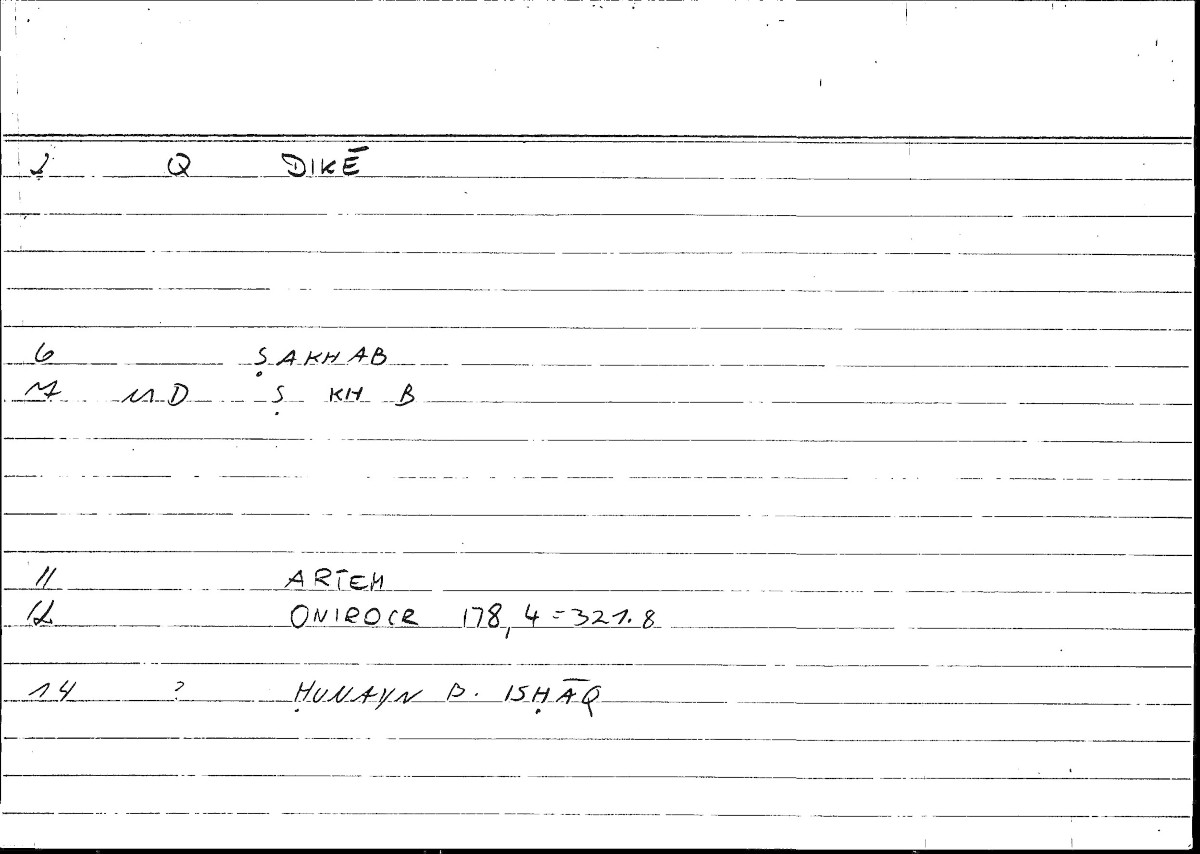 2 Q DIKĒ
6 ṢAKHAB
7 MD Ṣ KH B
11 ARTEM
12 ONIROCR 178,4=321.8
14 ? ḤUNAYN B. ISḤĀQ